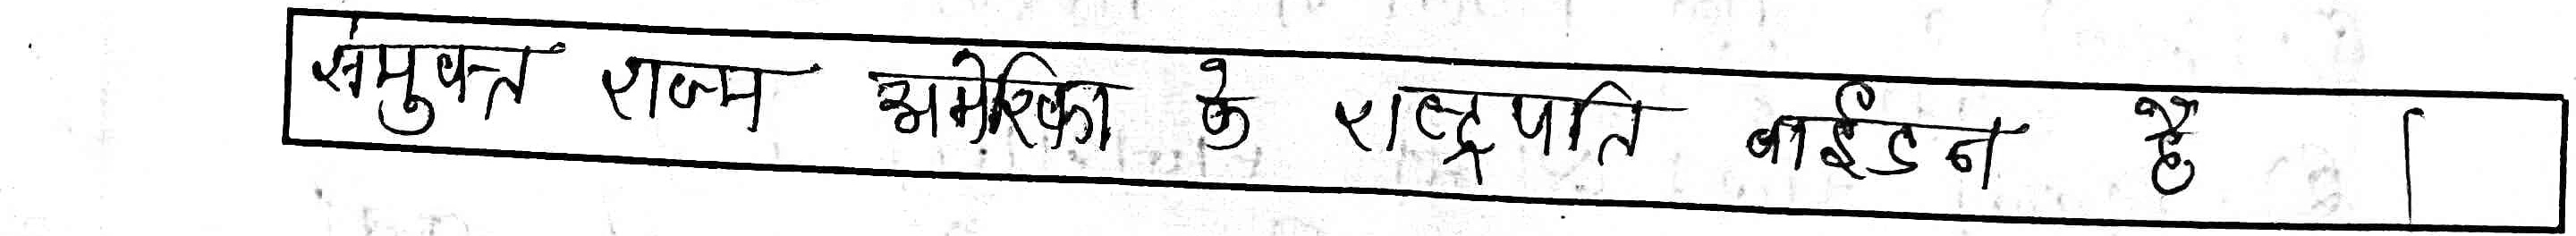 संयुक्त राज्य अमेरिका के राष्ट्रपति बाईडन है ।